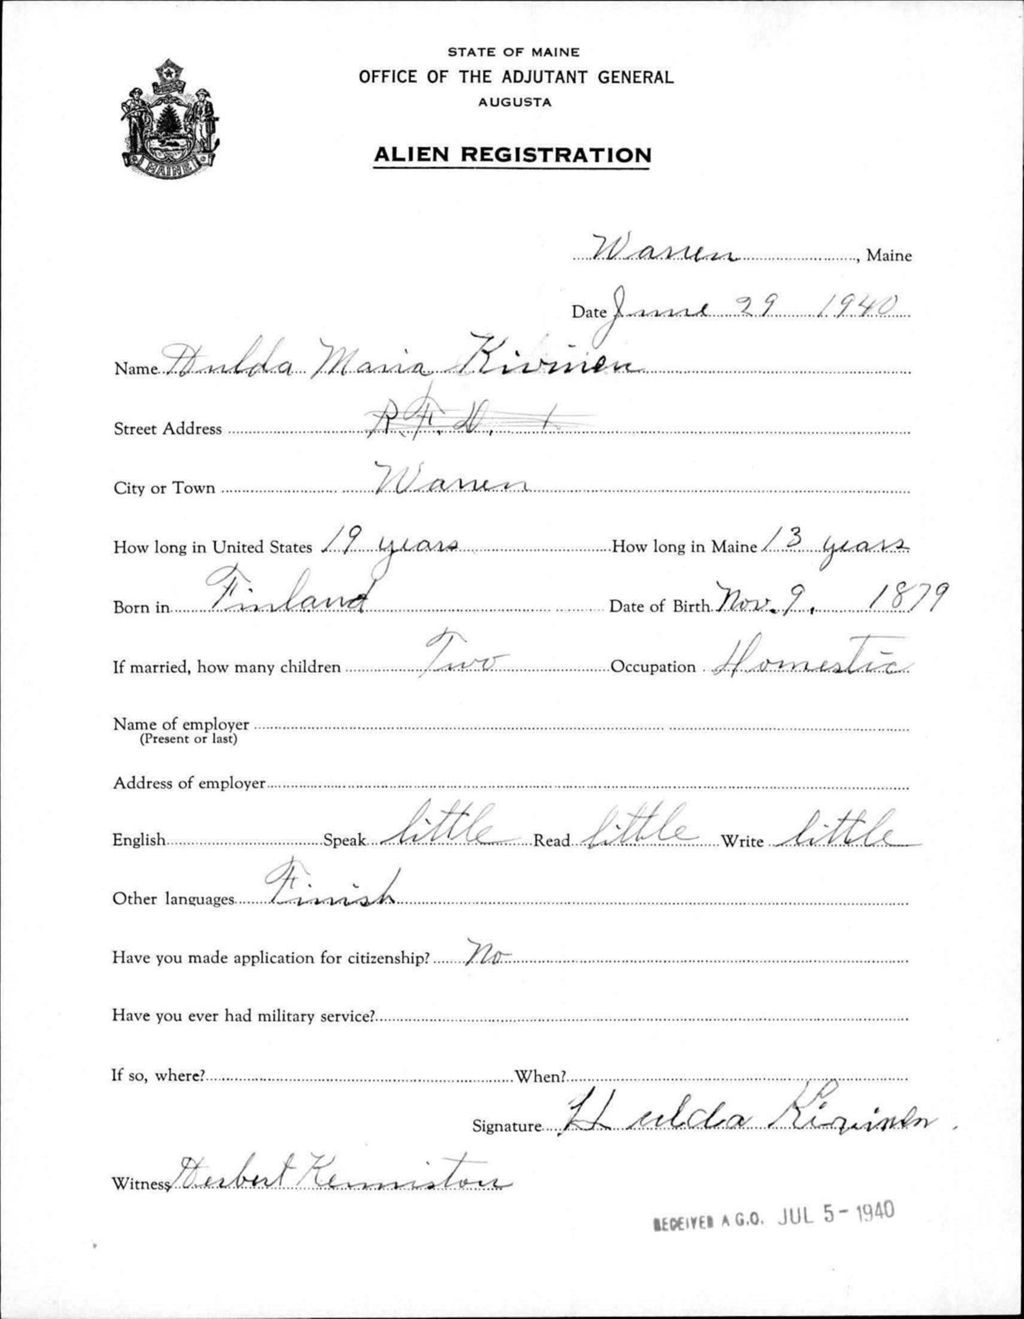 STATE OF MAINE
OFFICE OF THE ADJUTANT GENERAL
AUGUSTA
ALIEN REGISTRATION
MAINE
Warren, Maine
Date June 29 1940
Name Hulda Maria Kivinen
Street Address R.F.D. 1
City or Town Warren
How long in United States 19 years How long in Maine 13 years
Born in Finland Date of Birth Nov. 9, 1879
If married, how many children Two Occupation Homestic
Name of employer
(Present or last)
Address of employer
English Speak little Read little Write little
Other languages Finish
Have you made application for citizenship? No
Have you ever had military service?
If so, where? When?
Signature Hulda Kivinen.
Witness Herbert Kenniston
RECEIVED A.G.O. JUL 5- 1940